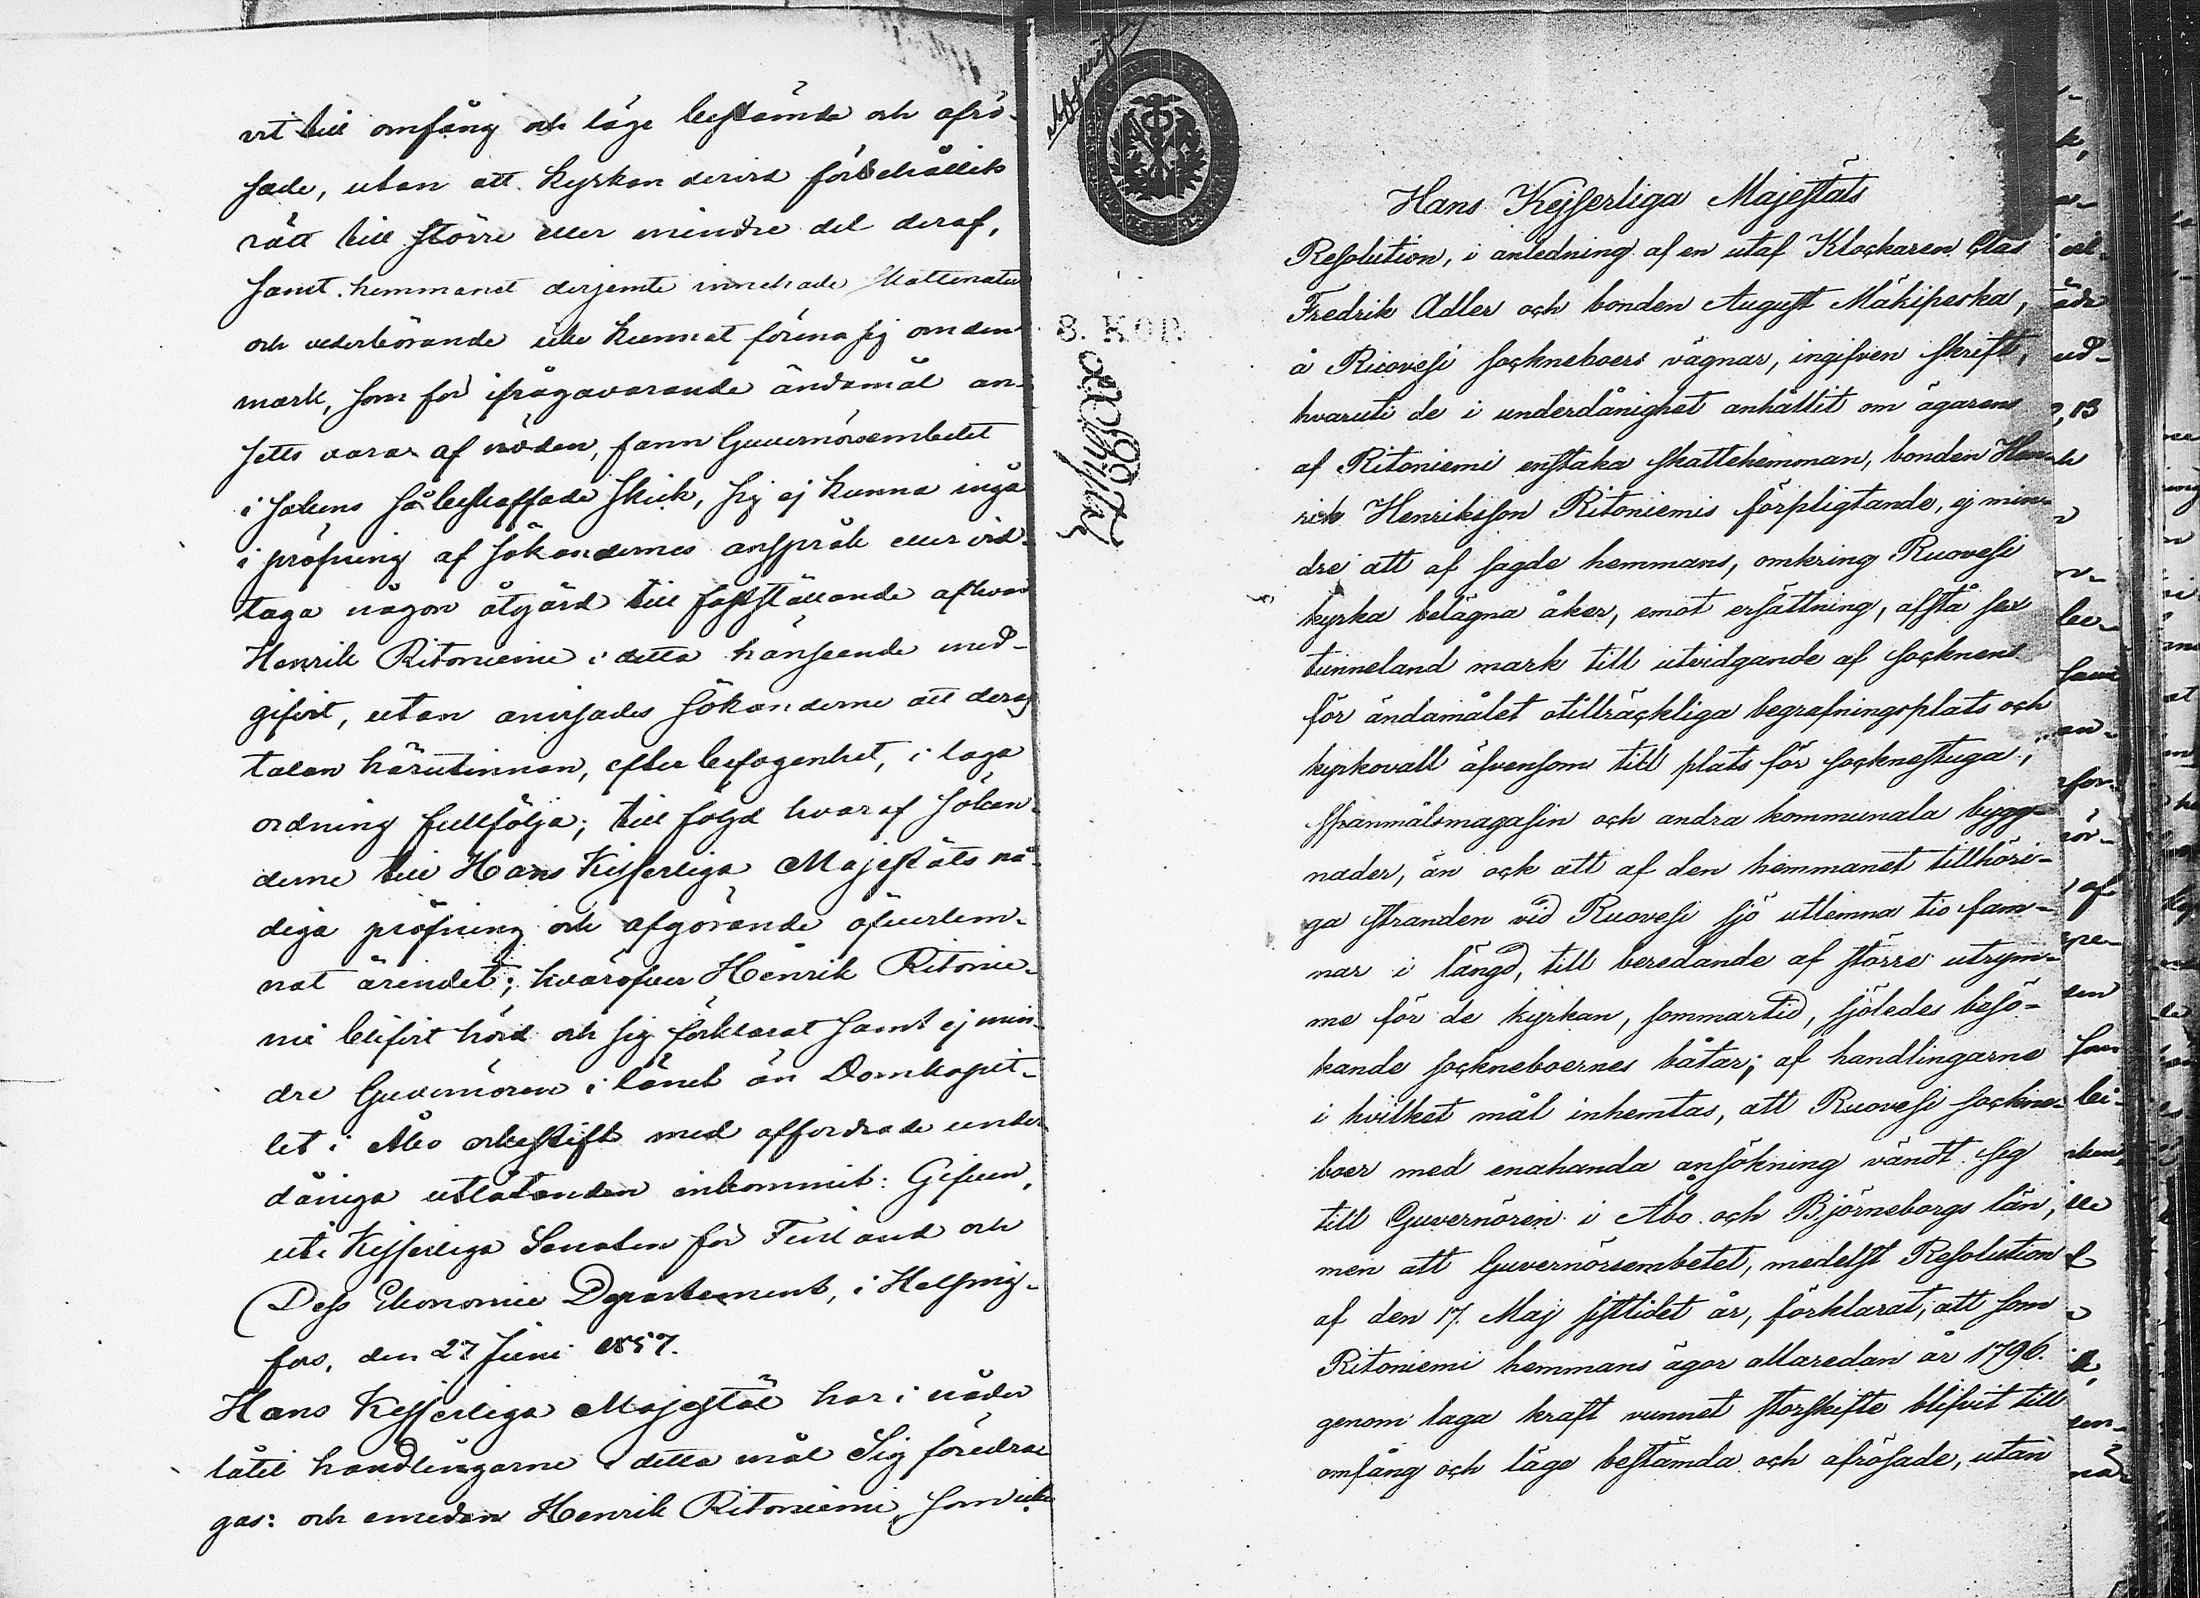 vit till omfång och läge bestämda och afrö-
sade, utan att kyrkan dervid förbehållits
rätt till större eller mindre del deraf,
samt hemmanet derjemte innehade skattenatur
och vederbörande icke kunnat förena sig om den
mark, som för ifrågavarande ändamål an-
setts vara af nöden, fann Guvernörsembetet
i sakens så beskaffade skick, sig ej kunna ingå
i pröfning af sökandernes anspråk eller vid-
taga någon åtgärd till fastställande af hvad
Henrik Ritoniemi i detta hänseende med-
gifvit, utan anvisades sökanderne att deras
talan härutinnan, efter befogenhet, i laga
ordning fullfölja; till följd hvaraf sökan-
derne till Hans Kejserliga Majestäts nå-
diga pröfning och afgörande öfverlem-
nat ärendet; hvaröfver Henrik Ritonie-
mi blifvit hörd och sig förklarat samt ej min-
dre Guvernören i länet än Domkapit-
let i Åbo erkestift med affordrade under-
dåniga utlåtanden inkommit: Gifven,
uti Kejserliga Senaten för Finland och
Dess Ekonomie Departement, i Helsing-
fors, den 27 Juni 1857.
Hans Kejserliga Majestät har i nåder
låtit handlingarne i detta mål Sig föredra-
gas: och emedan Henrik Ritoniemi, som icke
Afskrift
8. KOP.
Hans Kejserliga Majestäts
Resolution, i anledning af en utaf Klockaren Gustaf
Fredrik Adler och bonden August Mäkipeska,
å Ruovesi sockneboers vägnar, ingifven skrift,
hvaruti de i underdånighet anhållit om ägarens
af Ritoniemi enstaka skattehemman, bonden Hen-
rich Henriksson Ritoniemis förpligtande, ej min-
dre att af sagde hemmans, omkring Ruovesi
kyrka belägna åker, emot ersättning, afstå sex
tunneland mark till utvidgande af socknens
för ändamålet otillräckliga begrafningsplats och
kyrkovall äfvensom till plats för socknestuga,
spanmålsmagasin och andra kommunala bygg-
nader, än ock att af den hemmanet tillhöri-
ga stranden vid Ruovesi sjö utlemna tio fam-
nar i längd, till beredande af större utrym-
me för de kyrkan, sommartid, sjöledes besö-
kande sockneboernes båtar; af handlingarne
i hvilket mål inhemtas, att Ruovesi sockne-
boer med enahanda ansökning vändt sig
till Guvernören i Åbo och Björneborgs län,
men att Guvernörsembetet, medelst Resolution
af den 17. Maj sistlidet år, förklarat, att som
Ritoniemi hemmans ägor allaredan år 1796.
genom laga kraft vunnet storskifte blifvit till
omfång och läge bestämda och afrösade, utan